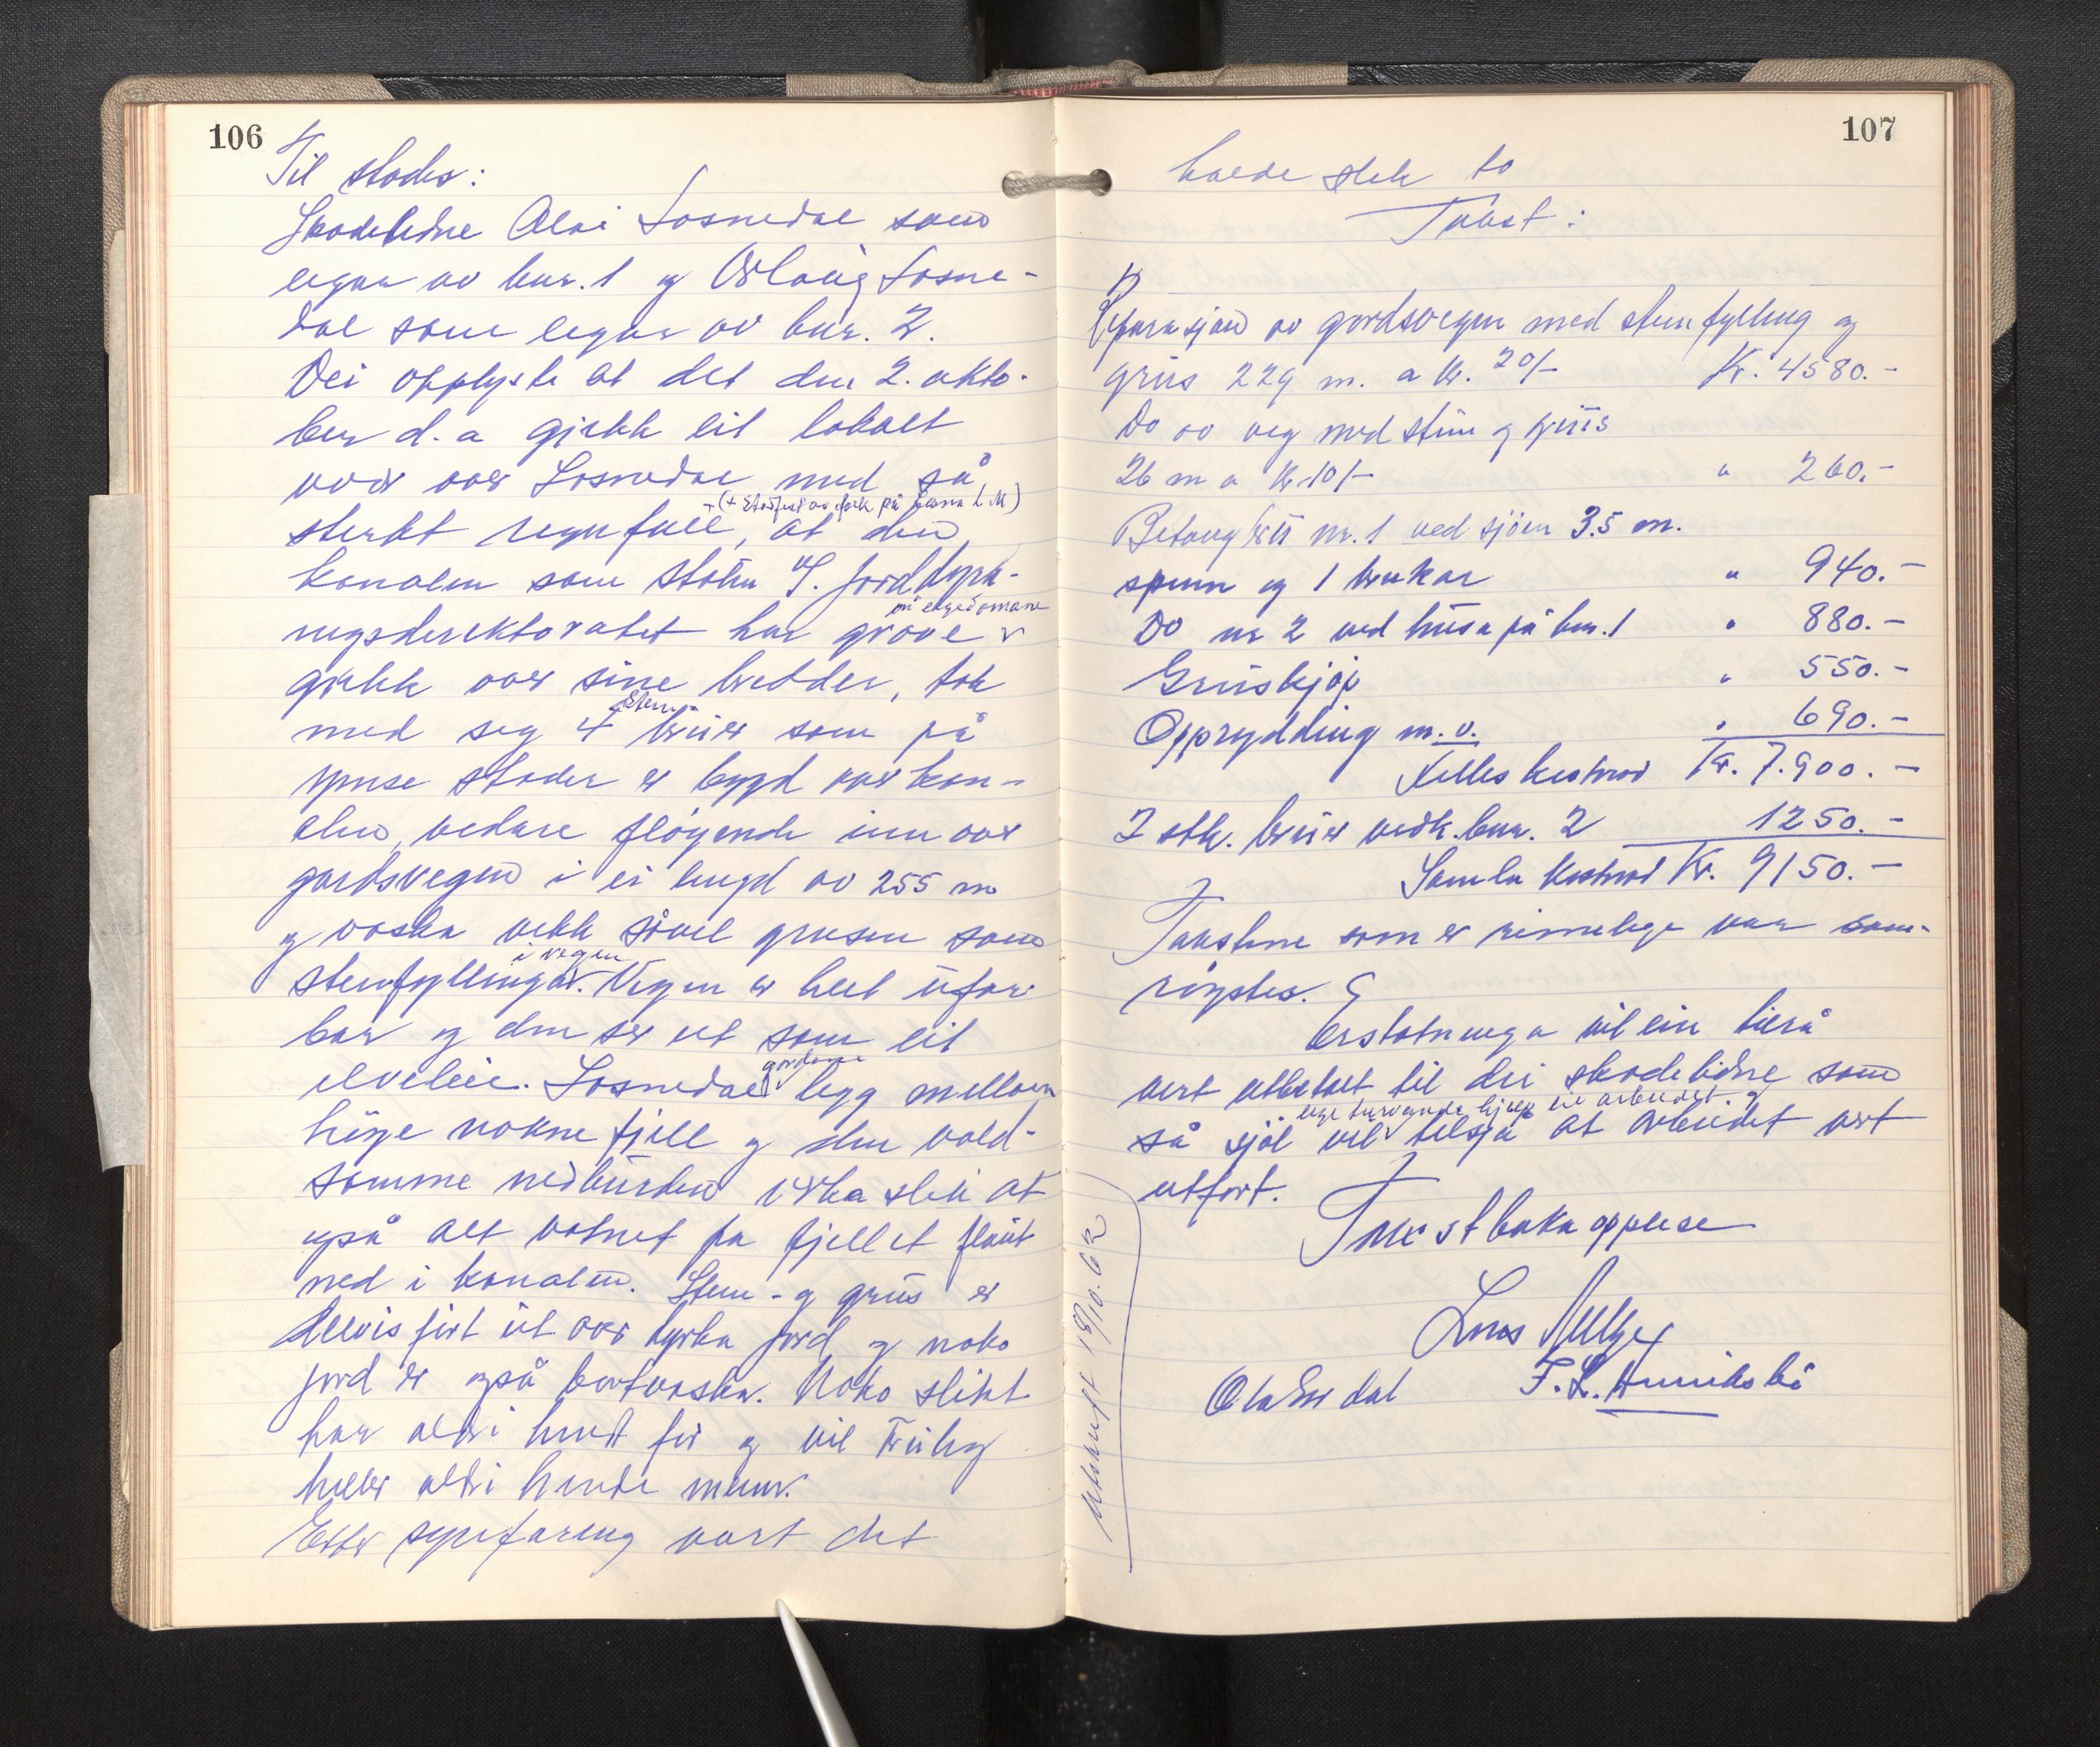 106
Til stades:
Skadelidne Alai Losnedal som
eigar av bnr. 1 og Losne-
dal som eigar av bnr. 2.
Dei opplyste at det den 2. okto-
ber d.a gjekk eit lokalt
over Losnedal med så
sterkt regnfall, at den
kanalen som staten v/ Jorddyrk-
på eigedomane
ingsdirektoratet har grave
gjekk over sine bredder, tok
Stein
med seg 4 bruer som på
ymse stader er bygd over kan-
alen, vedare fløymde inn over
gardsvegen i ei lengd av 255 m
og vaska vekk såvel grusen som
i vegen
steinfyllingar. Vegen er heil ufar-
bar og den ser ut som eit
elveleie. Losnedal gardane ligg mellom
høge nakne fjell og den vald-
somme nedbørden virka slik at
også alt vatnet fra fjellet flaut
ned i kanalen. Stein - og grus er
delvis ført ut over dyrka jord og noko
jord er også bortvaska. Noko slikt
har aldri hendt før og vil truleg
heller aldri hende meir.
Etter synfaring vart det
107
halde slik to
Takst:
Reparasjon av gardsvegen med steinfylling og
grus 229 m. a kr. 20/- Kr. 4580.-
Do av veg med stein og grus
26 m a kr. 10/- " 260.-
Betongbru nr. 1 ved sjøen 3.5 m.
spenn og 1 brukar " 940.-
Do nr 2 ved husa på bnr. 1 " 880.-
Gruskjøp " 550.-
Opprydding m.v. " 690.-
Felles kostnad Kr. 7.900.-
2 stk. bruer vedk. bnr. 2 1250.-
Samla kostnad Kr. 9150.-
Takstene som er rimelege var sam-
røystes.
Erstatninga vil ein tilrå
vert utbetalt til dei skadelidne som
leige turvande hjelp til arbeidet og
så sjøl vil tilsjå at arbeidet vert
utført.
Takst bøka opplese
Lars
Ola Eredal F. L. Henriksbø
Utskrift 18/10.62